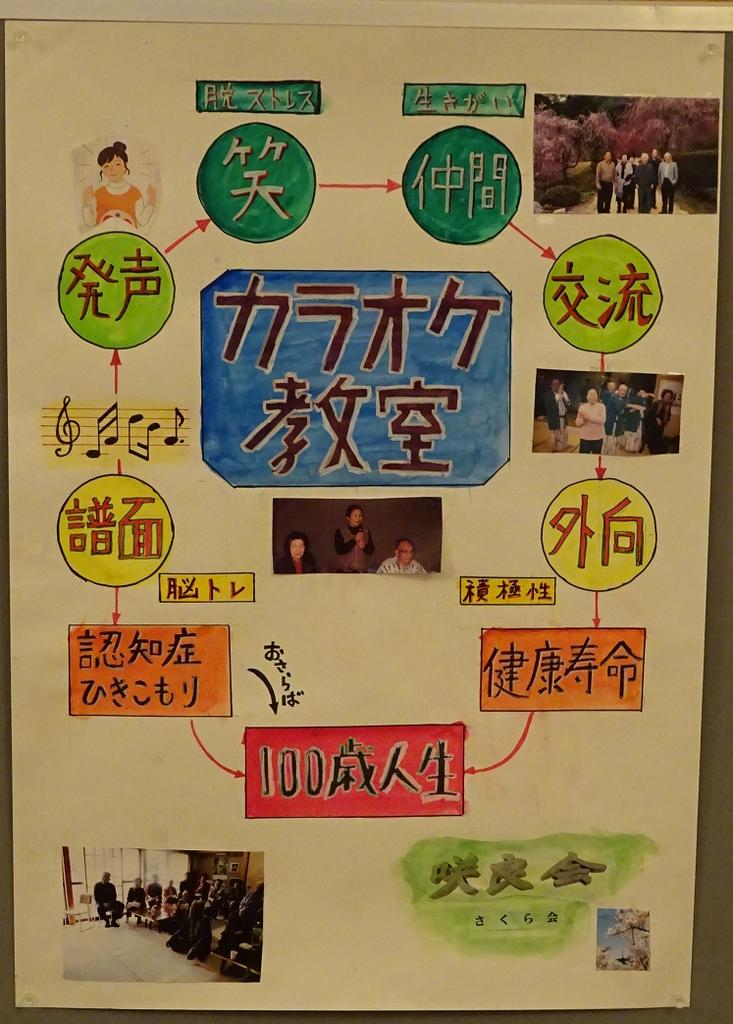 脱ストレス
生きがい
笑
仲間
発声
交流
カラオケ
教室
譜面
外向
脳トレ
積極性
認知症
ひきこもり
おさらば
健康寿命
100歳人生
咲良会
さくら会